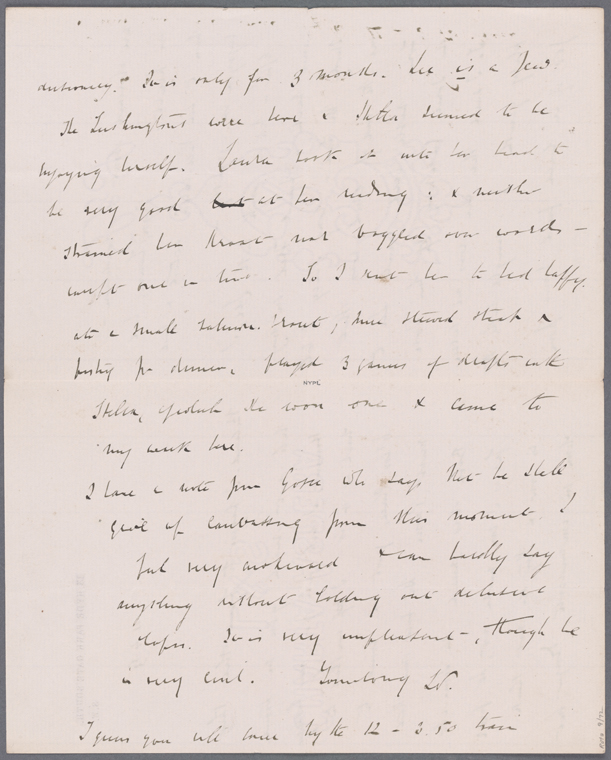 dictionary. It is only for 3 months. Lee is a Jew.
The Lushingtons were here & Stella seemed to be
enjoying herself. Laura took it into her head to
be very good at her reading: & neither
strained her throat nor boggled over words –
except one or two. So I sent her to bed happy,
ate a small salmon trout, some stewed steak &
pastry for dinner, played 3 games of drafts with
Stella, of which she won one & came to
my work here.
I have a note from Gosse who says that he shall
give up canvassing from this moment. I
feel very awkward & can hardly say
anything without holding out delusive
hopes. It is very unpleasant –, though he
is very civil. Your loving LS.
I guess you will come by the 12 – 3.50 train
NYPL